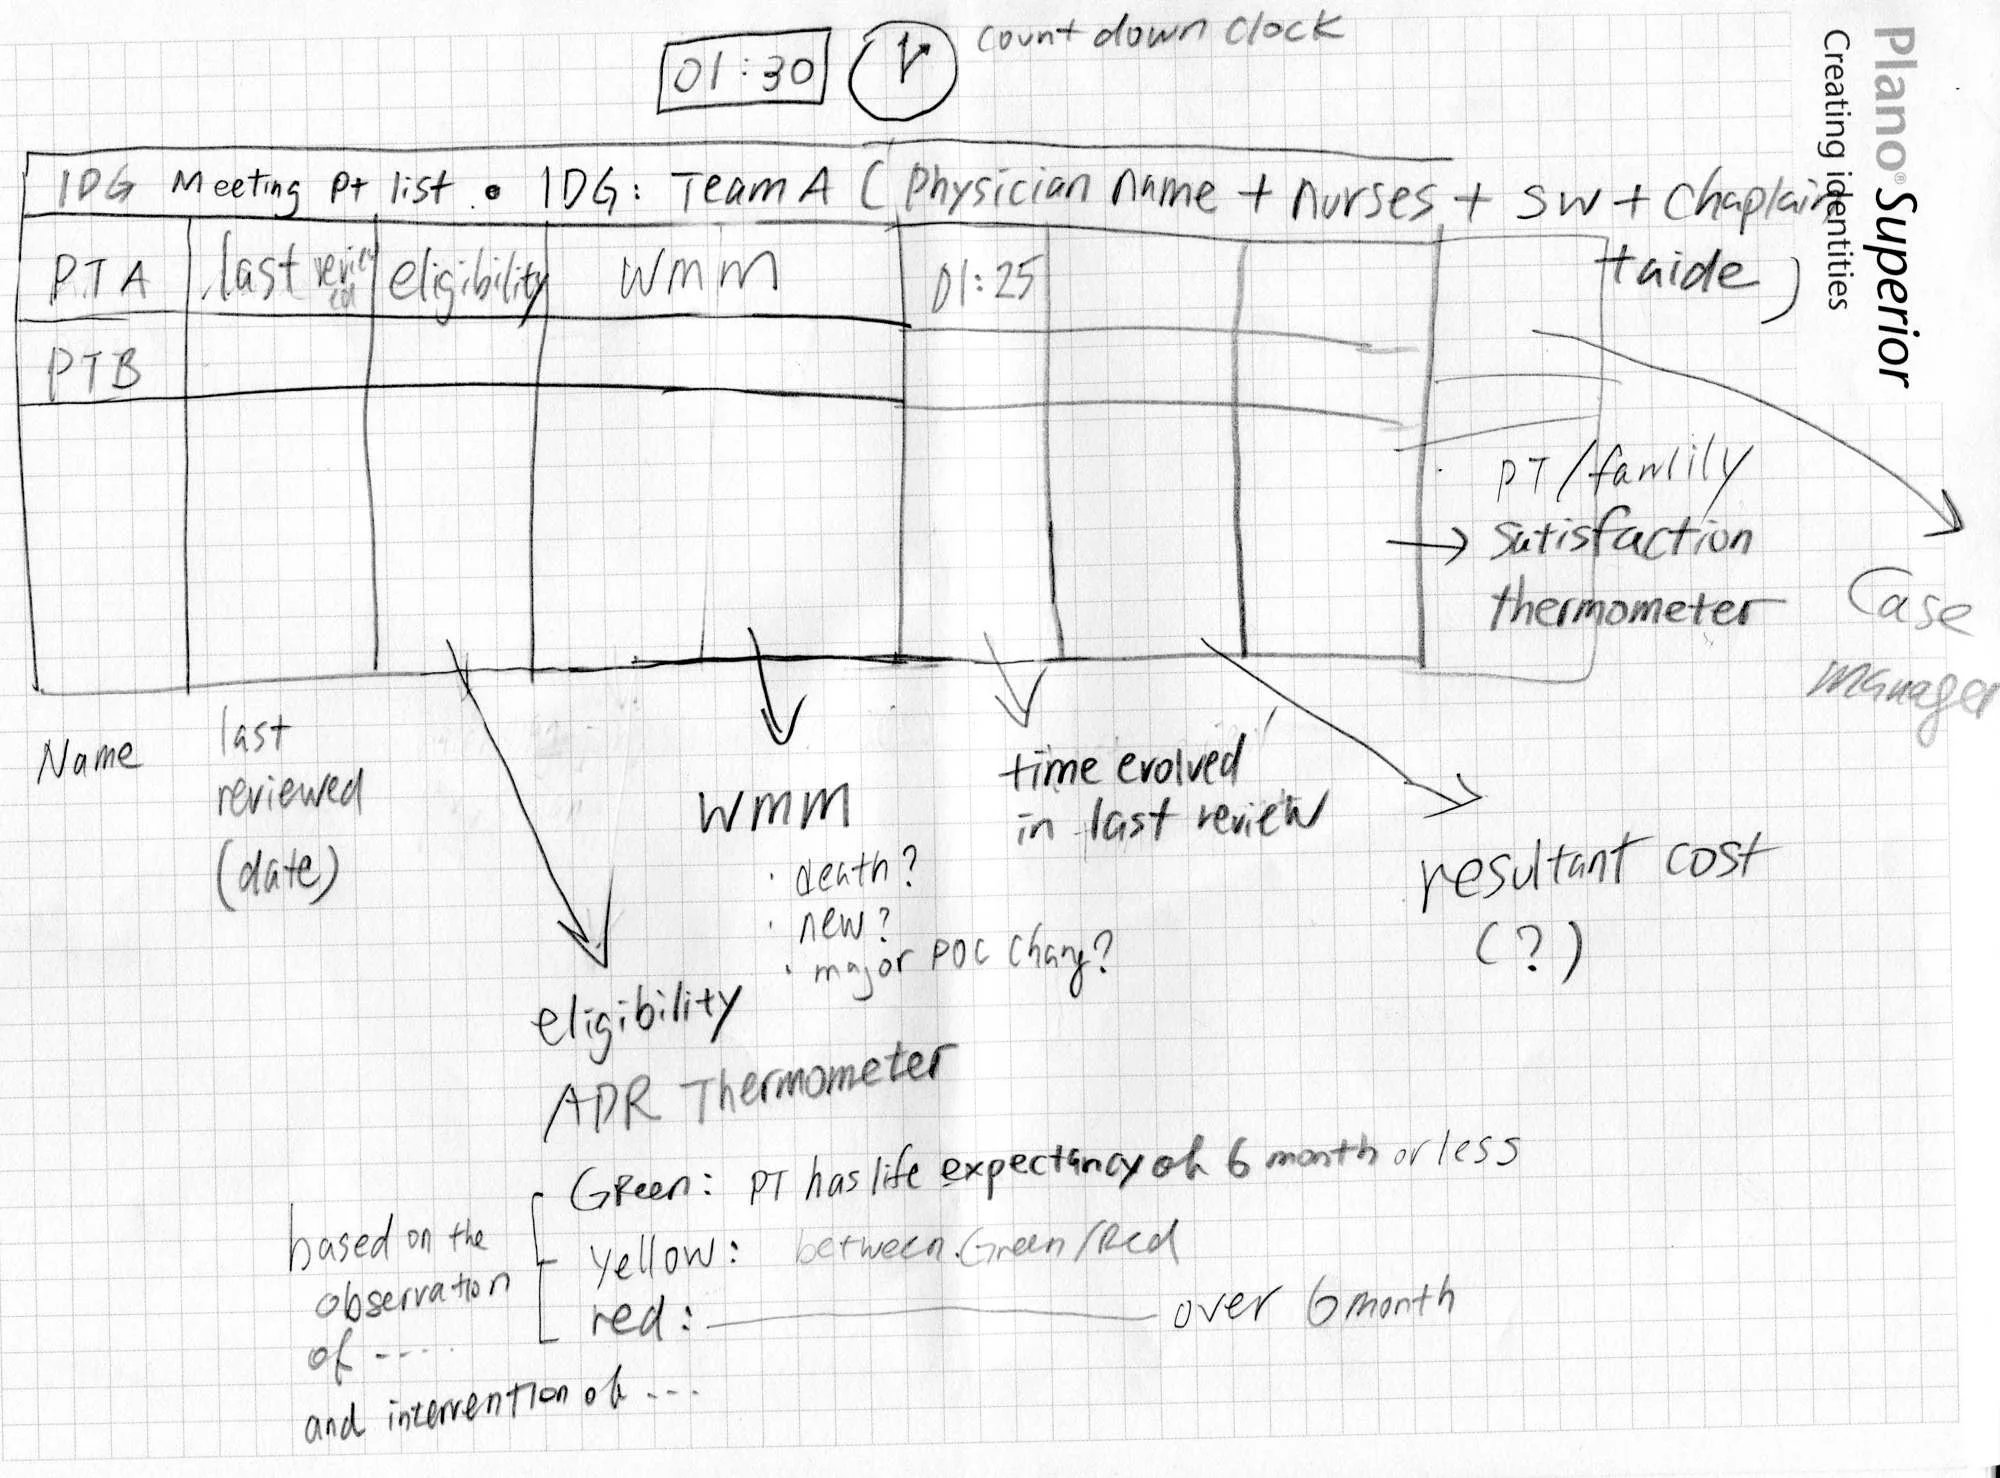 count down clock
01:30
Plano® Superior
Creating identities
IDG Meeting Pt list. • IDG: Team A (Physician name + nurses + SW + Chaplain
+aide)
PTA last review eligibility WMM 01:25
PTB
PT/family
→ Satisfaction
thermometer
Case
manager
Name
last
reviewed
(date)
WMM
• death?
• new?
• major POC Chang?
time evolved
in last review
resultant cost
(?)
eligibility
ADR Thermometer
Green: PT has life expectancy of 6 month or less
yellow: between Green/Red
red: over 6 month
based on the
observation
of ----
and intervention of ---